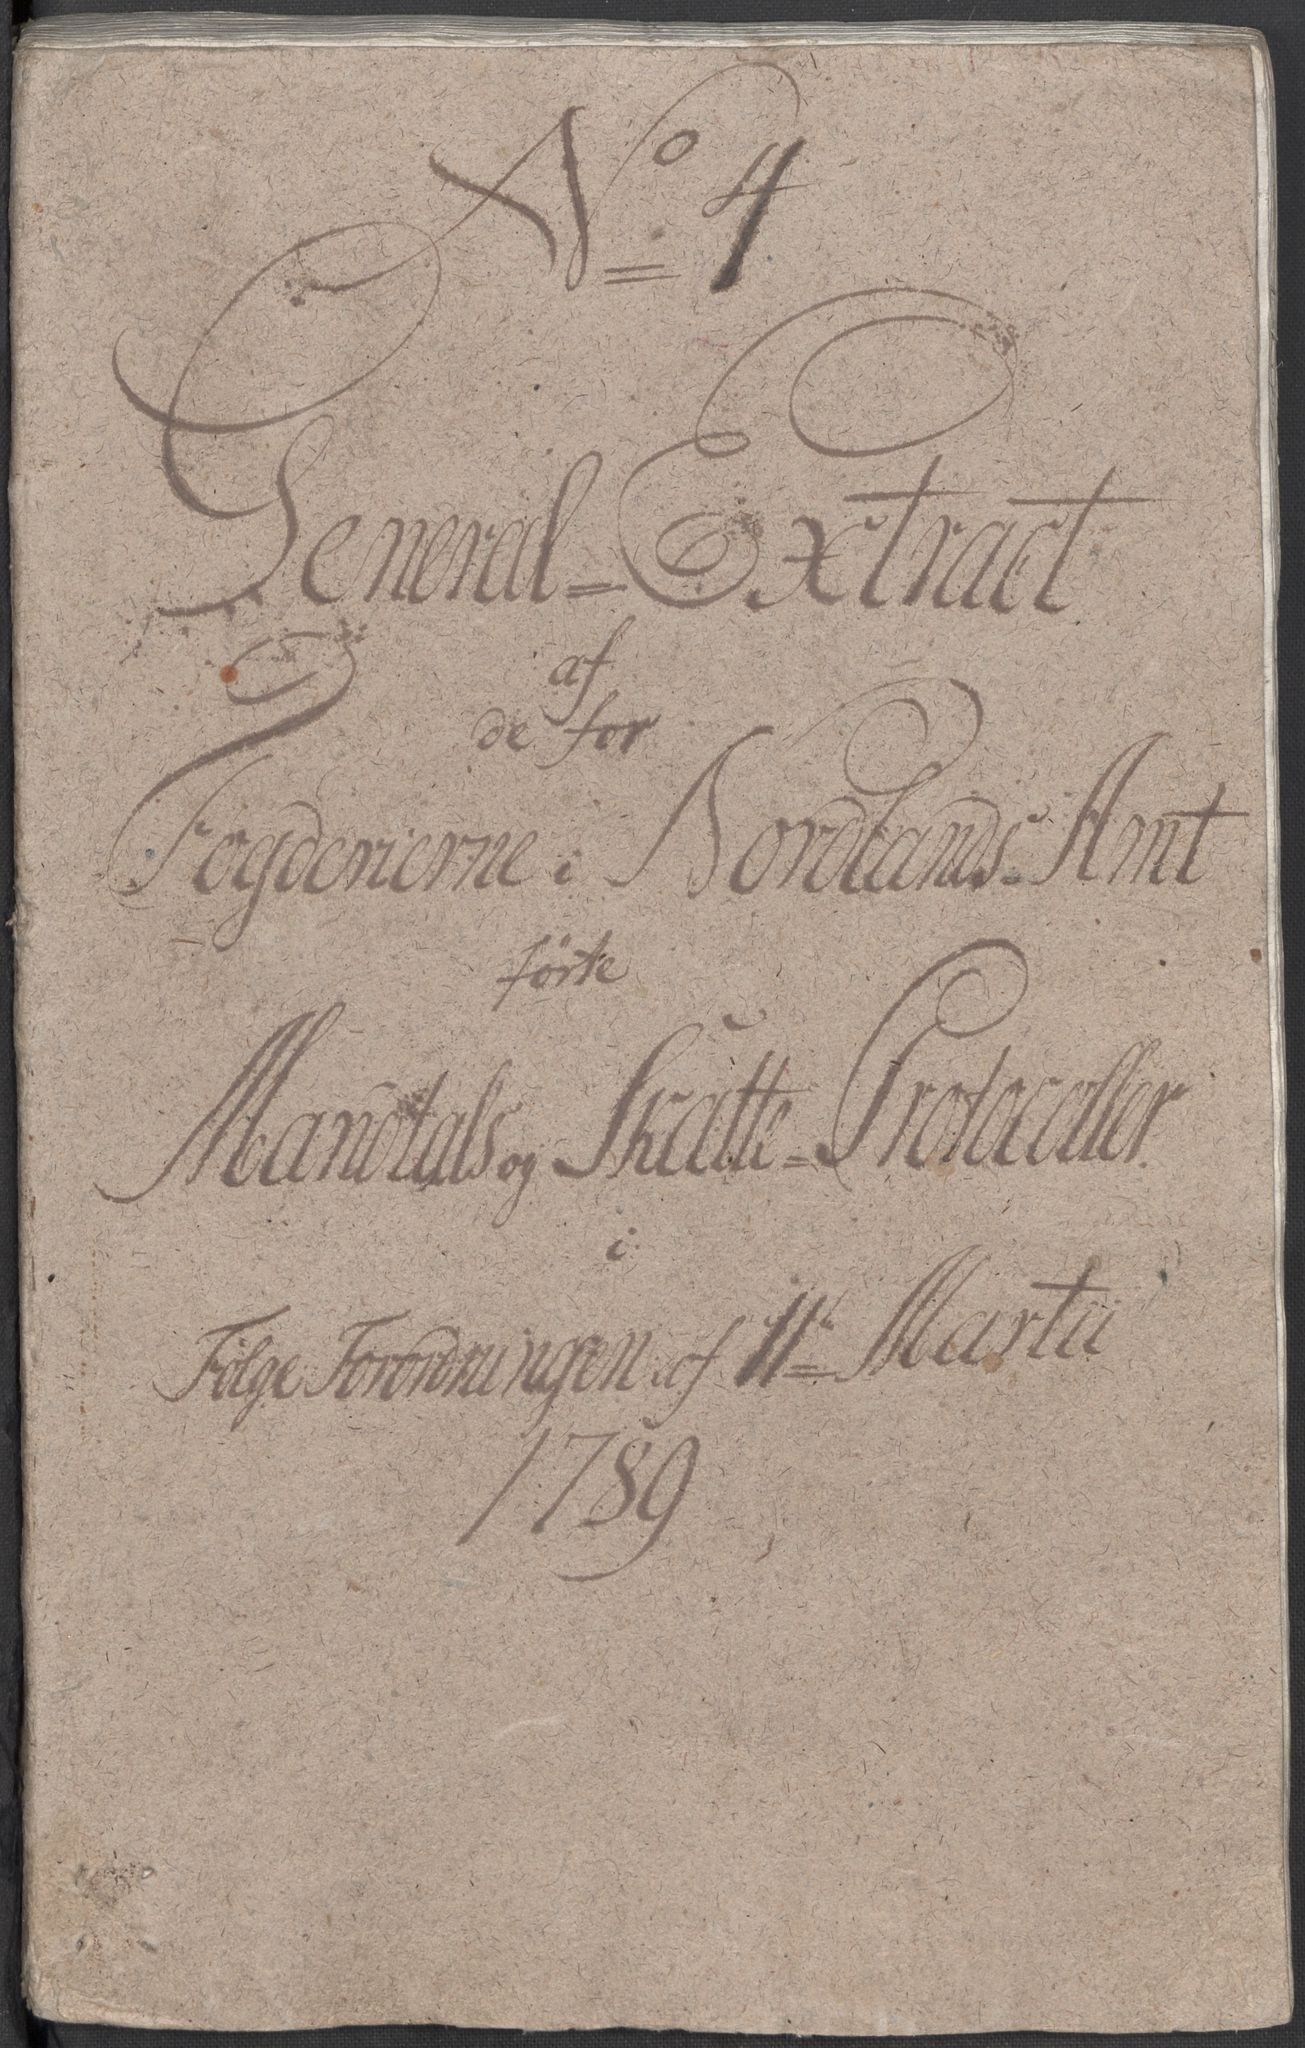 No 4
General=Extract
af
de for
Fogderierne i Nordlands Amt
førte
Mandtals og Skatte=Protocoller
i
Følge Forordningen af 11te Martii
1789